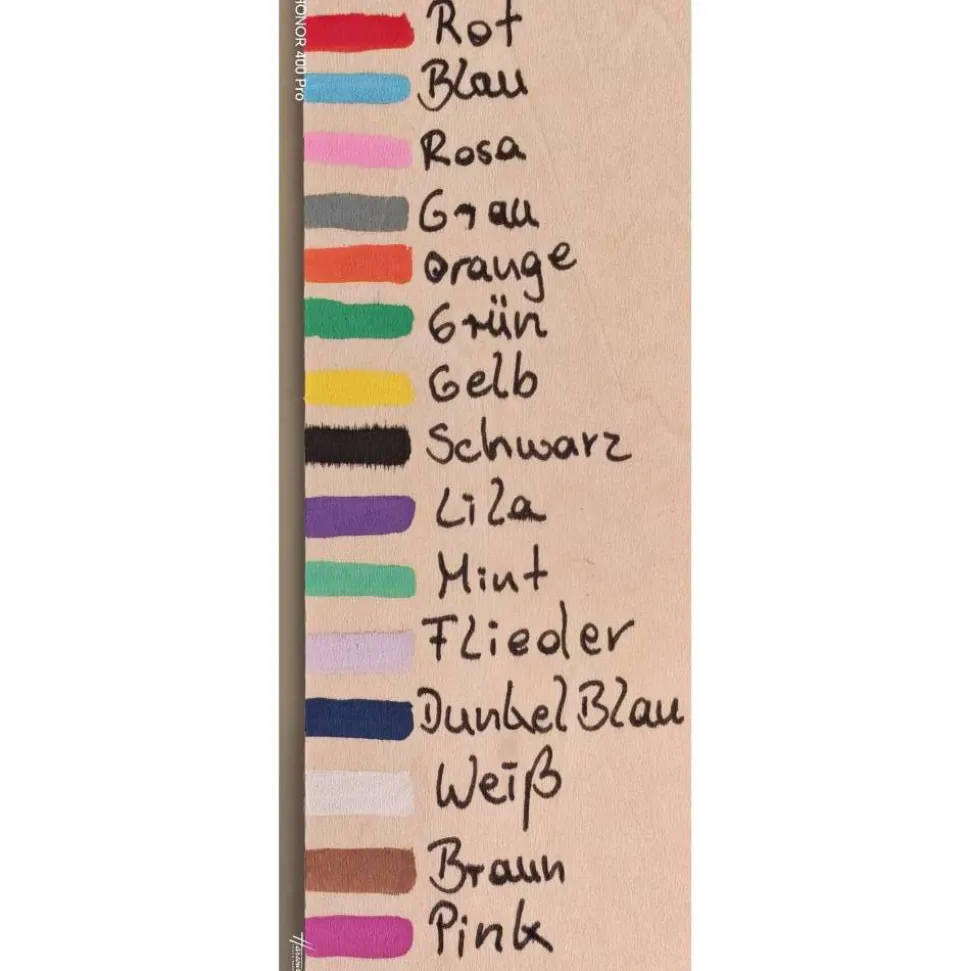 HONOR 400 Pro
Rot
Blau
Rosa
Grau
Orange
Grün
Gelb
Schwarz
Lila
Mint
Flieder
DunkelBlau
Weiß
Braun
Pink